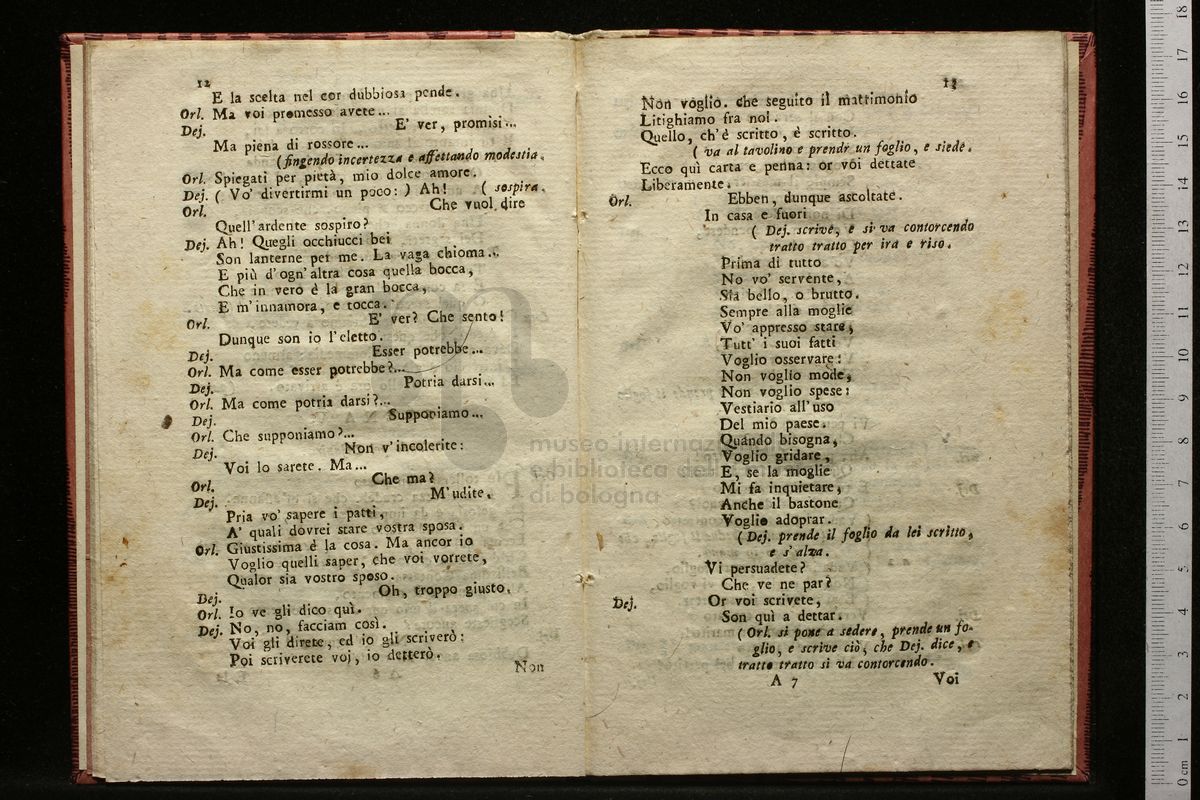 12
E la scelta nel cor dubbiosa pende.
Orl. Ma voi promesso avete...
Dej. E' ver, promisi...
Ma piena di rossore...
(fingendo incertezza e affettando modestia.
Orl. Spiegati per pietà, mio dolce amore.
Dej. ( Vo' divertirmi un poco: ) Ah! ( sospira.
Orl. Che vuol dire
Quell' ardente sospiro?
Dej. Ah! Quegli occhiucci bei
Son lanterne per me. La vaga chioma...
E più d'ogn' altra cosa quella bocca,
Che in vero è la gran bocca,
E m'innamora, e tocca.
Orl. E' ver? Che sento!
Dunque son io l'eletto.
Dej. Esser potrebbe...
Orl. Ma come esser potrebbe?...
Dej. Potria darsi...
Orl. Ma come potria darsi?...
Dej. Supponiamo...
Orl. Che supponiamo?...
Dej. Non v'incolerite:
Voi lo sarete. Ma...
Orl. Che ma?
Dej. M'udite.
Pria vo' sapere i patti,
A' quali dovrei stare vostra sposa.
Orl. Giustissima è la cosa. Ma ancor io
Voglio quelli saper, che voi vorrete,
Qualor sia vostro sposo.
Dej. Oh, troppo giusto.
Orl. Io ve gli dico quì.
Dej. No, no, facciam così.
Voi gli direte, ed io gli scriverò:
Poi scriverete voi, io detterò.
Non
13
Non voglio. che seguito il matrimonio
Litighiamo fra noi.
Quello, ch'è scritto, è scritto.
( va al tavolino e prendr un foglio, e siede.
Ecco quì carta e penna: or voi dettate
Liberamente.
Orl. Ebben, dunque ascoltate.
In casa e fuori
( Dej. scrive, e si va contorcendo
tratto tratto per ira e riso.
Prima di tutto
No vo' servente,
Sia bello, o brutto.
Sempre alla moglie
Vo' appresso stare,
Tutt' i suoi fatti
Voglio osservare:
Non voglio mode,
Non voglio spese:
Vestiario all'uso
Del mio paese.
Quando bisogna,
Voglio gridare,
E, se la moglie
Mi fa inquietare,
Anche il bastone
Voglio adoprar.
( Dej. prende il foglio da lei scritto,
e s'alza.
Vi persuadete?
Che ve ne par?
Dej. Or voi scrivete,
Son quì a dettar.
( Orl. si pone a sedere, prende un fo-
glio, e scrive ciò, che Dej. dice, e
tratto tratto si va contorcendo.
A 7 Voi
museo internaz
e biblioteca del
di bologna
0 cm 1 2 3 4 5 6 7 8 9 10 11 12 13 14 15 16 17 18